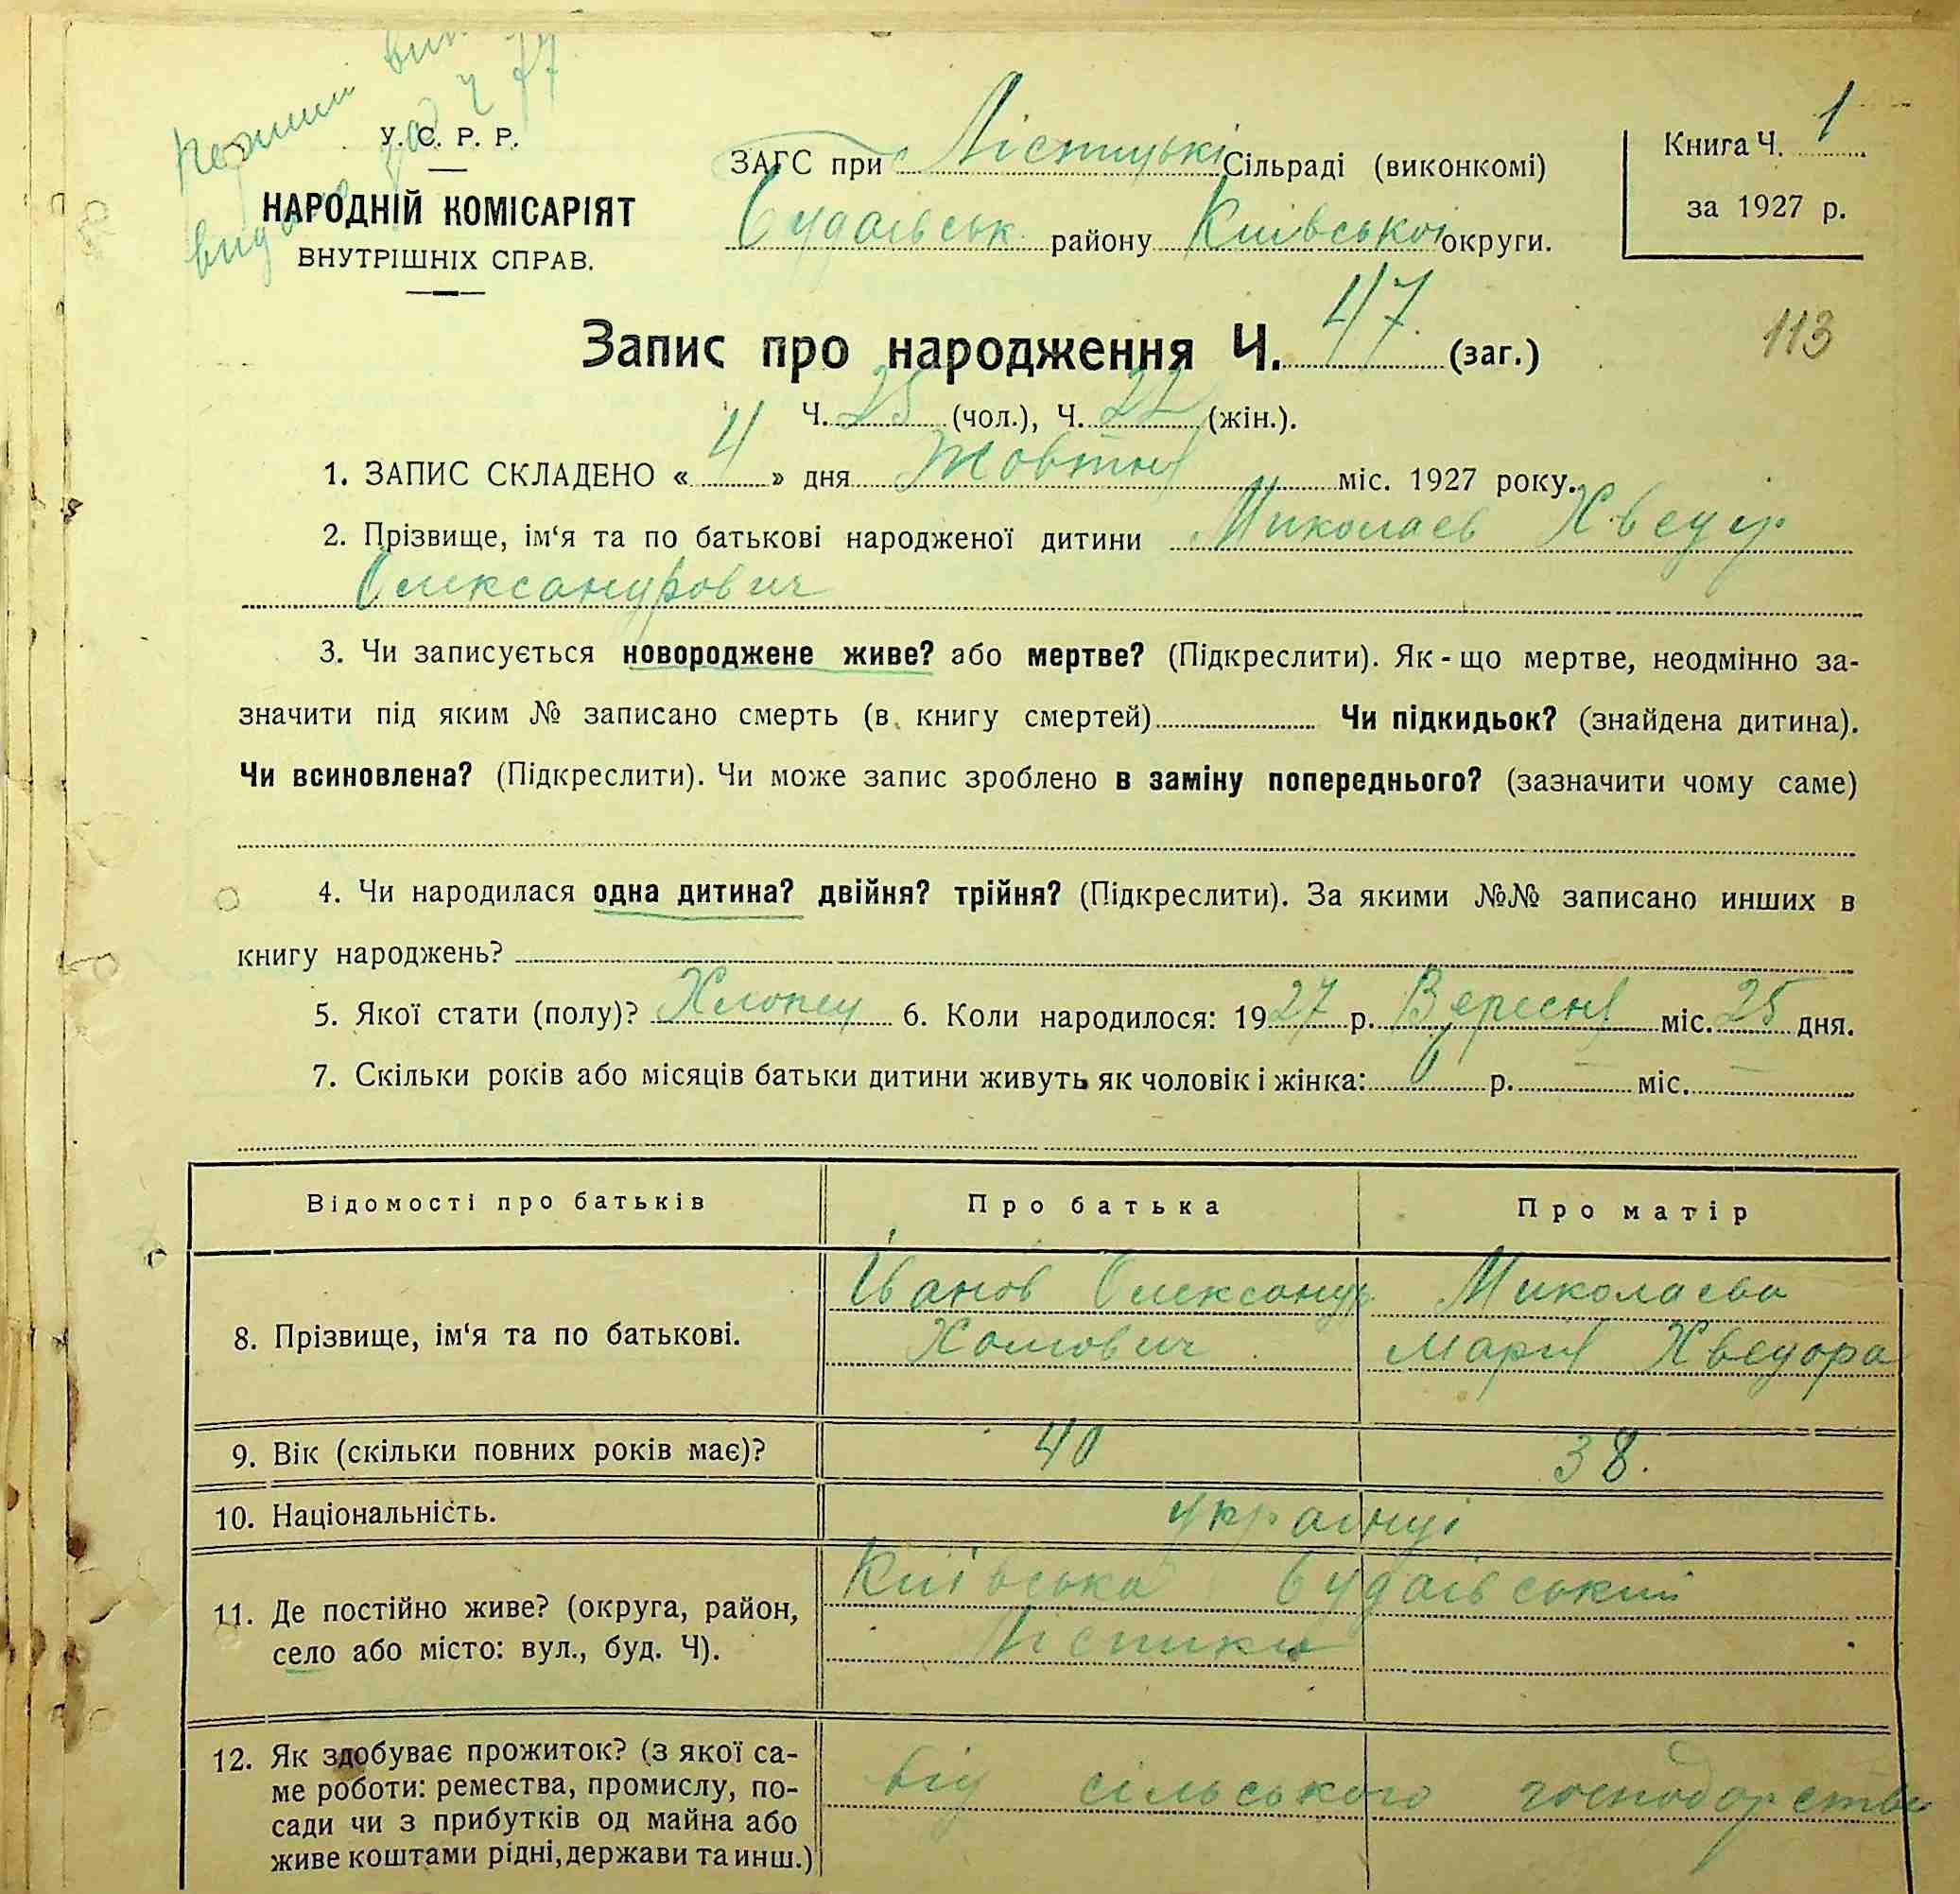 Перший вип
видано 77
У. С. Р. Р.
НАРОДНІЙ КОМІСАРІЯТ
ВНУТРІШНІХ СПРАВ.
ЗАГС при Лісницькі Сільраді (виконкомі)
Будаівськ району Київської округи.
Книга Ч. 1
за 1927 р.
113
Запис про народження Ч. 47 (заг.)
Ч. 25 (чол.), Ч. 22 (жін.).
1. ЗАПИС СКЛАДЕНО « 4 » дня Жовтня міс. 1927 року.
2. Прізвище, ім‘я та по батькові народженої дитини Миколаєв Хведір
Олександрович
3. Чи записується новороджене живе? або мертве? (Підкреслити). Як-що мертве, неодмінно за-
значити під яким № записано смерть (в книгу смертей) Чи підкидьок? (знайдена дитина).
Чи всиновлена? (Підкреслити). Чи може запис зроблено в заміну попереднього? (зазначити чому саме)
4. Чи народилася одна дитина? двійня? трійня? (Підкреслити). За якими №№ записано инших в
книгу народжень?
5. Якої стати (полу)? Хлопец 6. Коли народилося: 1927 р. Вересня міс. 25 дня.
7. Скільки років або місяців батьки дитини живуть як чоловік і жінка: 0 р. — міс. —
Відомості про батьків Про батька Про матір
8. Прізвище, ім‘я та по батькові.
Іванов Олександр
Хомович
Миколаєва
Марія Хведора
9. Вік (скільки повних років має)? 40 38.
10. Національність. українці
11. Де постійно живе? (округа, район,
село або місто: вул., буд. Ч).
Київська Будаівський
Лісники
12. Як здобуває прожиток? (з якої са-
ме роботи: ремества, промислу, по-
сади чи з прибутків од майна або
живе коштами рідні, держави та инш.)
від сільського господарства